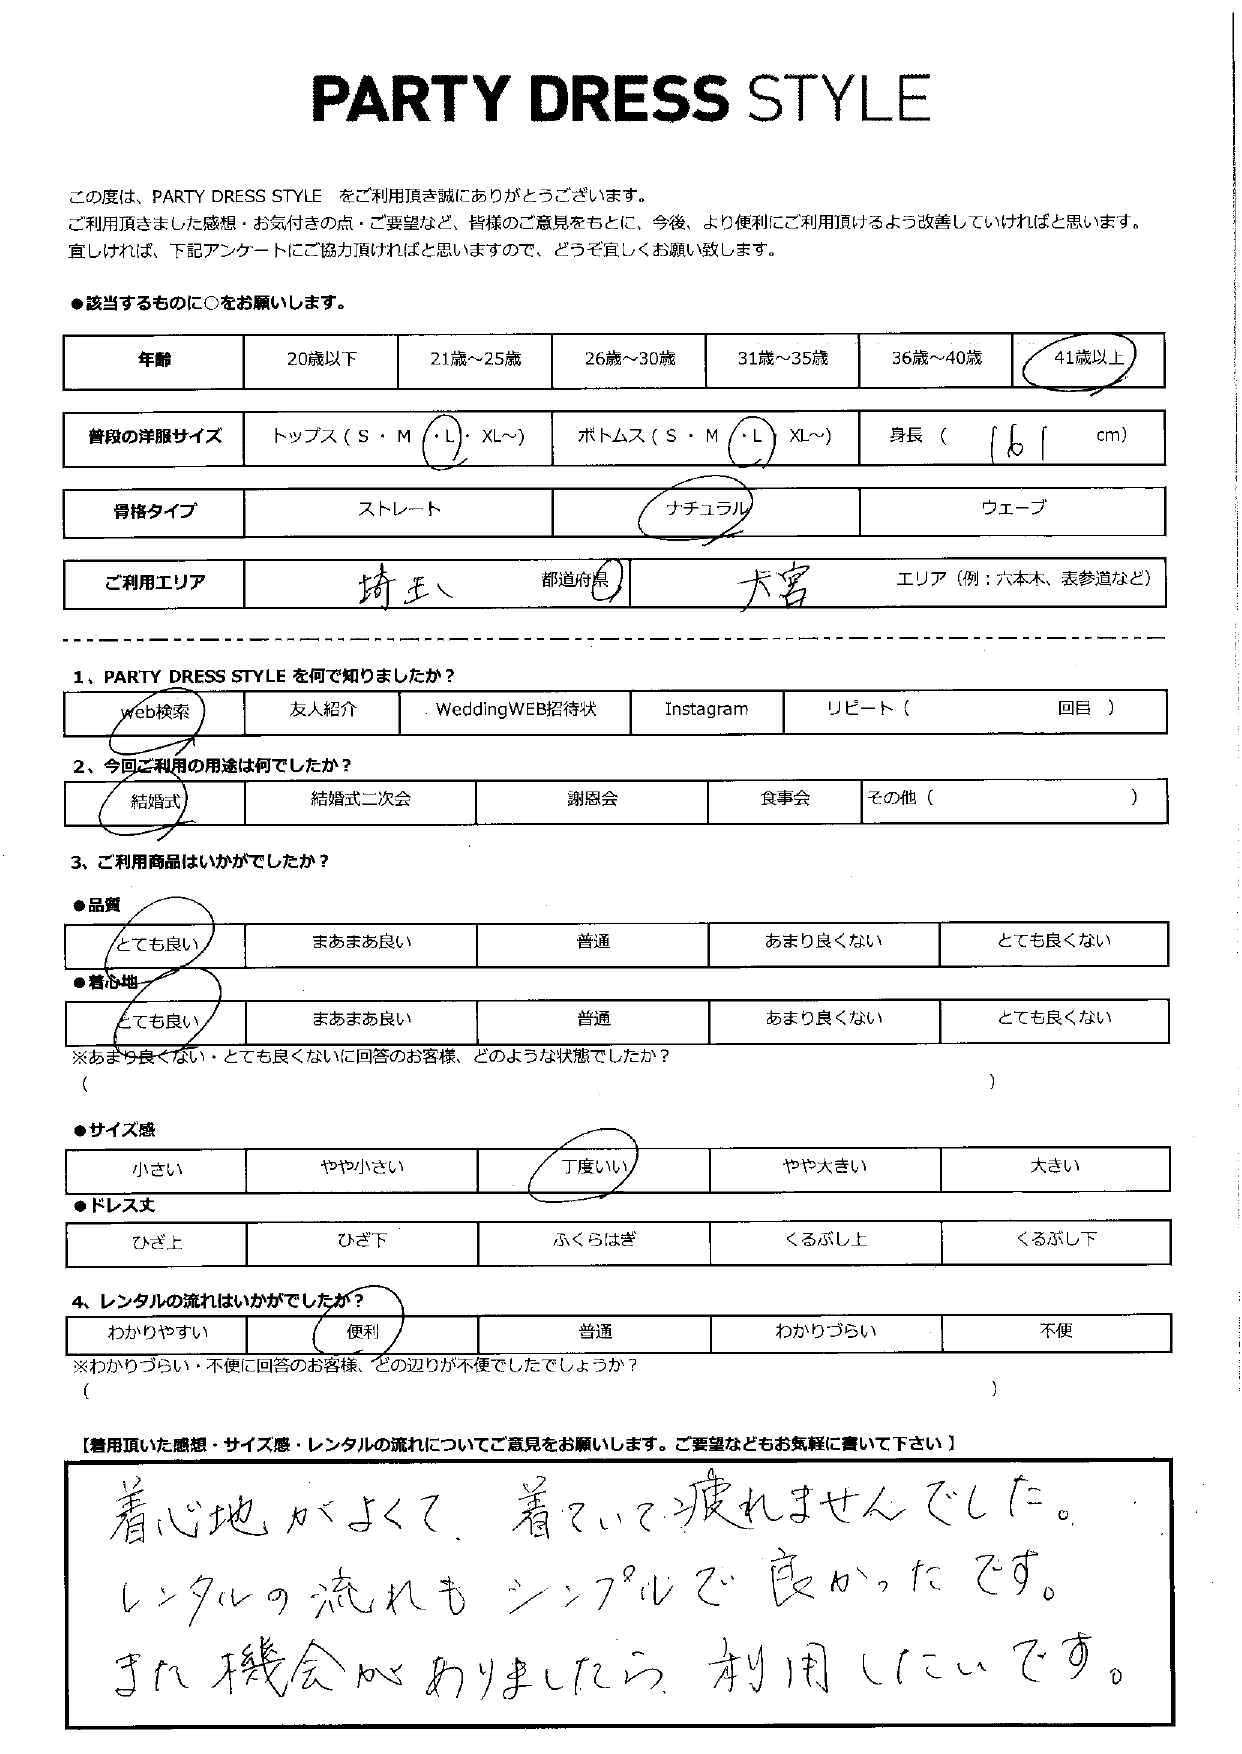 PARTY DRESS STYLE
この度は、PARTY DRESS STYLE をご利用頂き誠にありがとうございます。
ご利用頂きました感想・お気付きの点・ご要望など、皆様のご意見をもとに、今後、より便利にご利用頂けるよう改善していければと思います。
宜しければ、下記アンケートにご協力頂ければと思いますので、どうぞ宜しくお願い致します。
●該当するものに○をお願いします。
年齢 20歳以下 21歳～25歳 26歳～30歳 31歳～35歳 36歳～40歳 41歳以上
普段の洋服サイズ トップス ( S ・ M ・L・ XL～) ボトムス ( S ・ M ・L XL～) 身長 ( 161 cm)
骨格タイプ ストレート ナチュラル ウェーブ
ご利用エリア 埼玉 都道府県 大宮 エリア（例：六本木、表参道など）
1、PARTY DRESS STYLE を何で知りましたか？
web検索 友人紹介 WeddingWEB招待状 Instagram リピート（ 回目 ）
2、今回ご利用の用途は何でしたか？
結婚式 結婚式二次会 謝恩会 食事会 その他（ ）
3、ご利用商品はいかがでしたか？
●品質
とても良い まあまあ良い 普通 あまり良くない とても良くない
●着心地
とても良い まあまあ良い 普通 あまり良くない とても良くない
※あまり良くない・とても良くないに回答のお客様、どのような状態でしたか？
( )
●サイズ感
小さい やや小さい 丁度いい やや大きい 大きい
●ドレス丈
ひざ上 ひざ下 ふくらはぎ くるぶし上 くるぶし下
4、レンタルの流れはいかがでしたか？
わかりやすい 便利 普通 わかりづらい 不便
※わかりづらい・不便に回答のお客様、どの辺りが不便でしたでしょうか？
( )
【着用頂いた感想・サイズ感・レンタルの流れについてご意見をお願いします。ご要望などもお気軽に書いて下さい 】
着心地がよくて、着ていて疲れませんでした。
レンタルの流れもシンプルで良かったです。
また機会がありましたら、利用したいです。